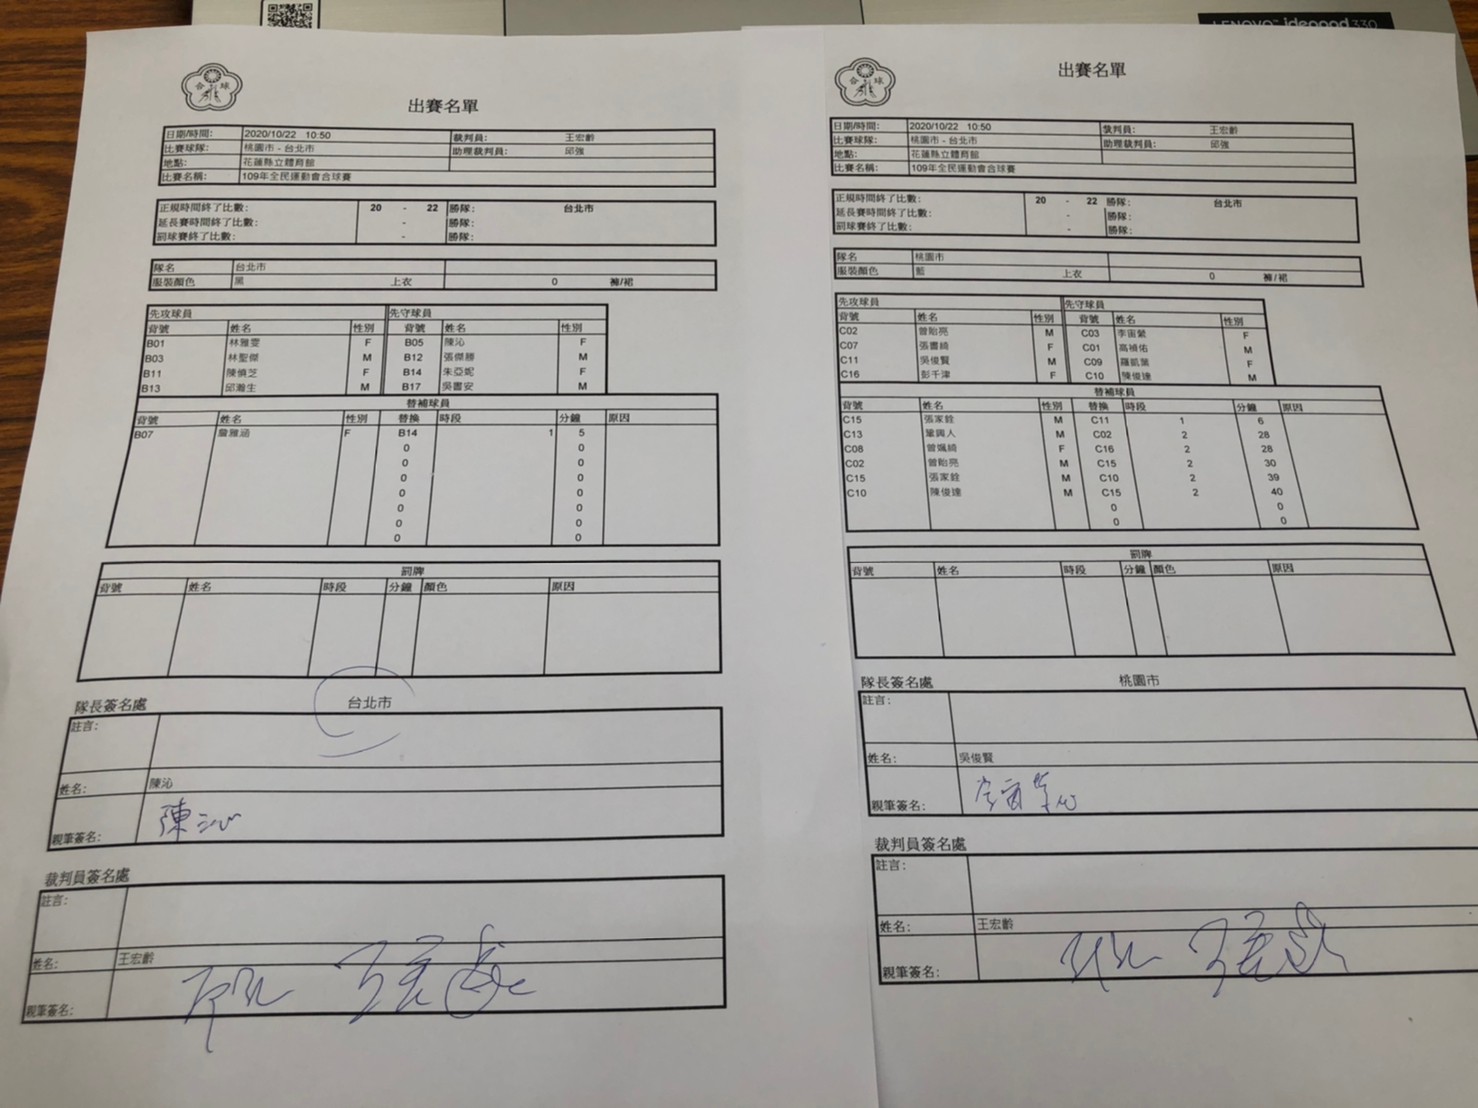 LENOVO ideapad 330
合 球
出賽名單
日期/時間: 2020/10/22 10:50 裁判員: 王宏齡
比賽球隊: 桃園市 - 台北市 助理裁判員: 邱強
地點: 花蓮縣立體育館
比賽名稱: 109年全民運動會合球賽
正規時間終了比數: 20 - 22 勝隊: 台北市
延長賽時間終了比數: - 勝隊:
罰球賽終了比數: - 勝隊:
隊名 台北市
服裝顏色 黑 上衣 0 褲/裙
先攻球員 先守球員
背號 姓名 性別 背號 姓名 性別
B01 林雅雯 F B05 陳沁 F
B03 林聖傑 M B12 張傑勝 M
B11 陳慎芝 F B14 朱亞妮 F
B13 邱瀚生 M B17 吳書安 M
替補球員
背號 姓名 性別 替換 時段 分鐘 原因
B07 詹雅涵 F B14 1 5
0 0
0 0
0 0
0 0
0 0
0 0
0 0
罰牌
背號 姓名 時段 分鐘 顏色 原因
隊長簽名處 台北市
註言:
姓名: 陳沁
親筆簽名: 陳沁
裁判員簽名處
註言:
姓名: 王宏齡
親筆簽名: 王宏齡
合 球
出賽名單
日期/時間: 2020/10/22 10:50 裁判員: 王宏齡
比賽球隊: 桃園市 - 台北市 助理裁判員: 邱強
地點: 花蓮縣立體育館
比賽名稱: 109年全民運動會合球賽
正規時間終了比數: 20 - 22 勝隊: 台北市
延長賽時間終了比數: - 勝隊:
罰球賽終了比數: - 勝隊:
隊名 桃園市
服裝顏色 藍 上衣 0 褲/裙
先攻球員 先守球員
背號 姓名 性別 背號 姓名 性別
C02 曾貽亮 M C03 李宙縈 F
C07 張書綺 F C01 高禎佑 M
C11 吳俊賢 M C09 羅凱葉 F
C16 彭千津 F C10 陳俊達 M
替補球員
背號 姓名 性別 替換 時段 分鐘 原因
C15 張家銓 M C11 1 6
C13 鞏興人 M C02 2 28
C08 曾珮綺 F C16 2 28
C02 曾貽亮 M C15 2 30
C15 張家銓 M C10 2 39
C10 陳俊達 M C15 2 40
0 0
0 0
罰牌
背號 姓名 時段 分鐘 顏色 原因
隊長簽名處 桃園市
註言:
姓名: 吳俊賢
親筆簽名:
裁判員簽名處
註言:
姓名: 王宏齡
親筆簽名: 王宏齡